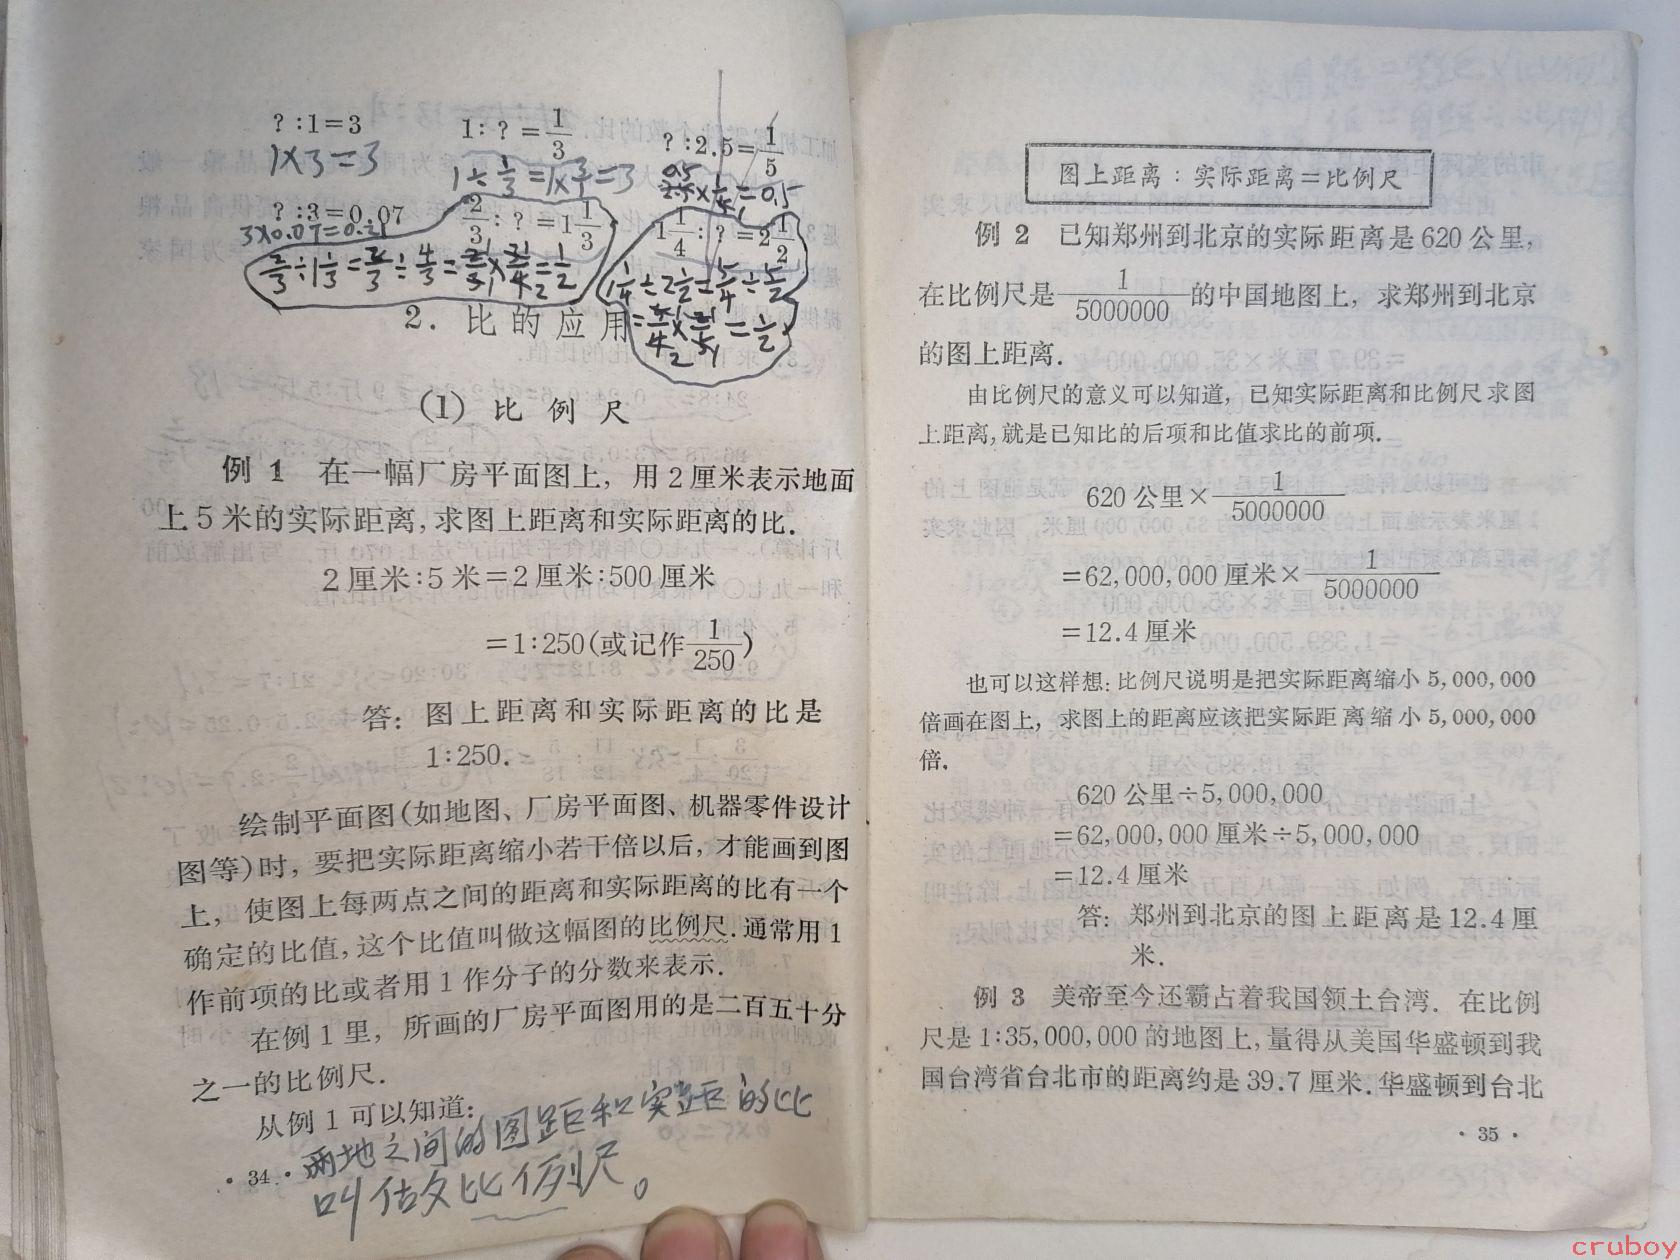 ? : 1 = 3
1 × 3 = 3
1 : ? = 1/3
1 ÷ 1/3 = 1 × 3/1 = 3
? : 2.5 = 1/5
0.5
2.5 × 1/5 = 0.5
? : 3 = 0.07
3×0.07=0.21
2/3 : ? = 1 1/3
2/3 ÷ 1 1/3 = 2/3 ÷ 4/3 = 2/3 × 3/4 = 1/2
1 1/4 : ? = 2 1/2
1 1/4 ÷ 2 1/2 = 5/4 ÷ 5/2
= 5/4 × 2/5 = 1/2
2. 比的应用
(1) 比例尺
例 1 在一幅厂房平面图上，用 2 厘米表示地面
上 5 米的实际距离，求图上距离和实际距离的比.
2 厘米 : 5 米 = 2 厘米 : 500 厘米
= 1 : 250 (或记作 1/250)
答: 图上距离和实际距离的比是
1 : 250.
绘制平面图(如地图、厂房平面图、机器零件设计
图等)时，要把实际距离缩小若干倍以后，才能画到图
上，使图上每两点之间的距离和实际距离的比有一个
确定的比值，这个比值叫做这幅图的比例尺. 通常用 1
作前项的比或者用 1 作分子的分数来表示.
在例 1 里，所画的厂房平面图用的是二百五十分
之一的比例尺.
从例 1 可以知道:
两地之间的图距和实距的比
叫做比例尺。
· 34 ·
图上距离 : 实际距离 = 比例尺
例 2 已知郑州到北京的实际距离是 620 公里，
在比例尺是 1/5000000 的中国地图上，求郑州到北京
的图上距离.
由比例尺的意义可以知道，已知实际距离和比例尺求图
上距离，就是已知比的后项和比值求比的前项.
620 公里 × 1/5000000
= 62,000,000 厘米 × 1/5000000
= 12.4 厘米
也可以这样想: 比例尺说明是把实际距离缩小 5,000,000
倍画在图上，求图上的距离应该把实际距离缩小 5,000,000
倍.
620 公里 ÷ 5,000,000
= 62,000,000 厘米 ÷ 5,000,000
= 12.4 厘米
答: 郑州到北京的图上距离是 12.4 厘
米.
例 3 美帝至今还霸占着我国领土台湾. 在比例
尺是 1:35,000,000 的地图上，量得从美国华盛顿到我
国台湾省台北市的距离约是 39.7 厘米. 华盛顿到台北
· 35 ·
cruboy